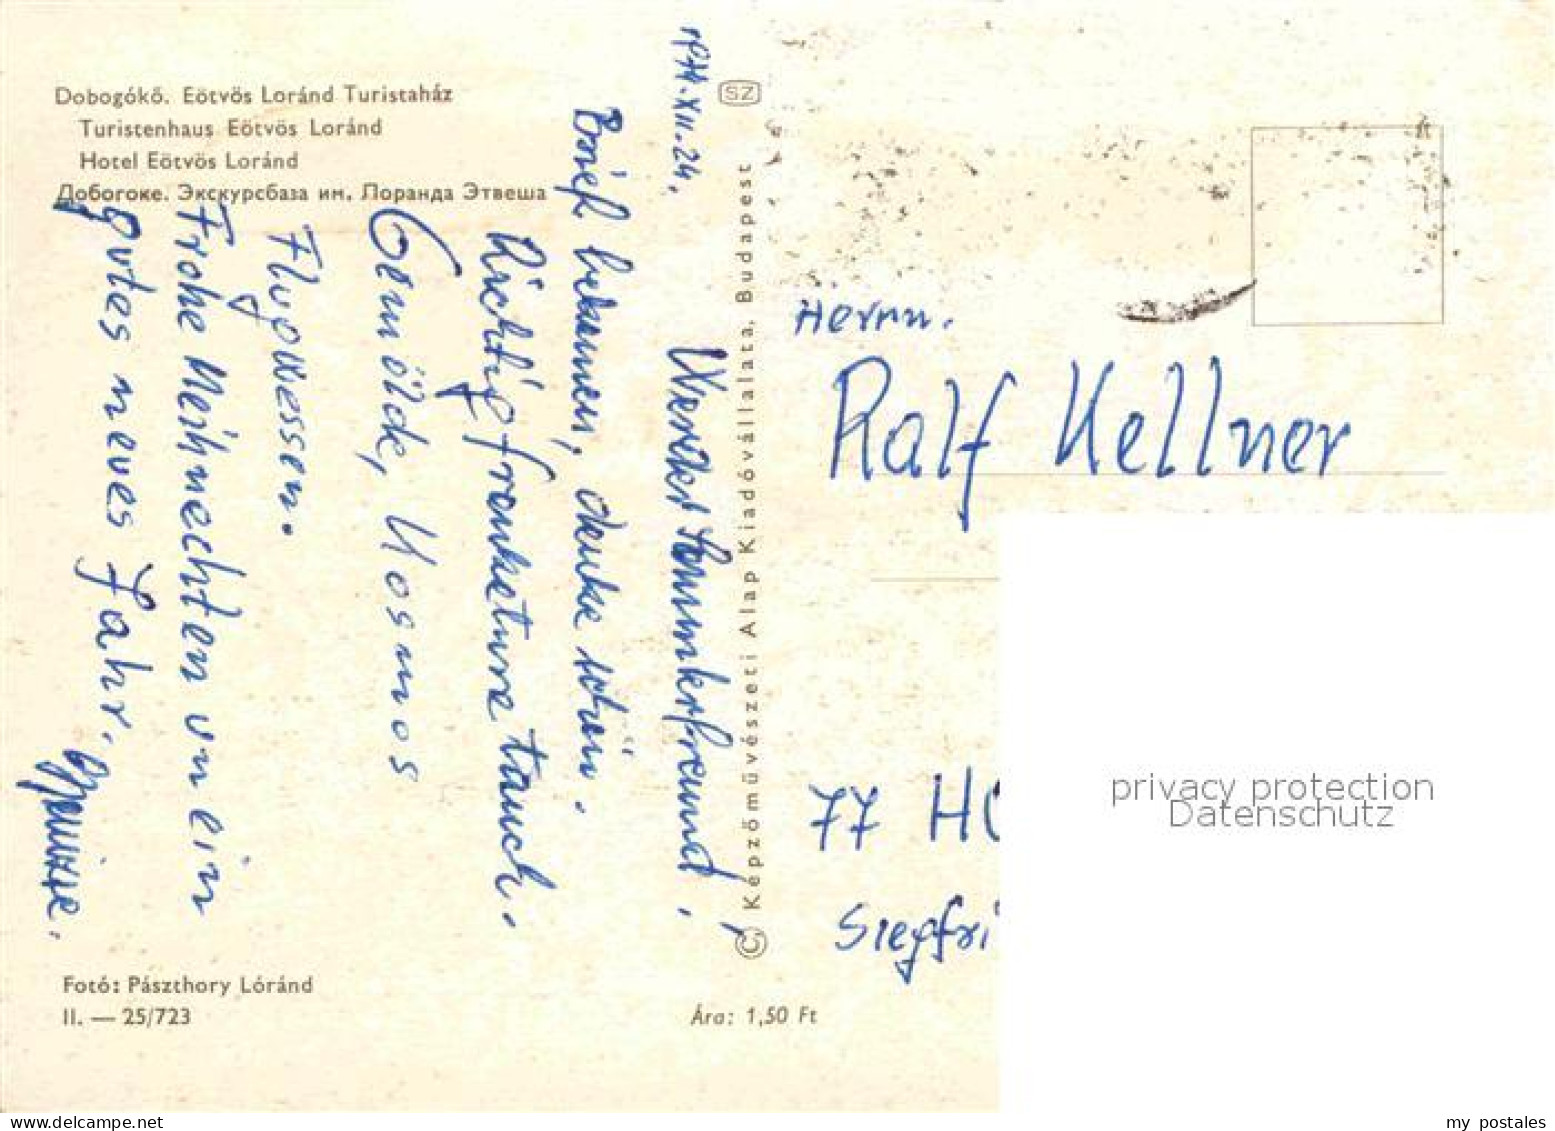 Dobogókő. Eötvös Loránd Turistaház
Turistenhaus Eötvös Loránd
Hotel Eötvös Loránd
Добогоке. Экскурсбаза им. Лоранда Этвеша
XII. 24.
Werter
Brief bekommen, danke schön.
Richtig frankature tauch.
Gemölde, Kosmos
Flugwessen.
Frohe Weihnechten un ein
gutes neues Jahr.
Fotó: Pászthory Lóránd
II. — 25/723
SZ
© Képzőművészeti Alap Kiadóvállalata, Budapest
Ára: 1,50 Ft
Herrn.
Ralf Kellner
77 HO
Siegfri
privacy protection
Datenschutz
my postales